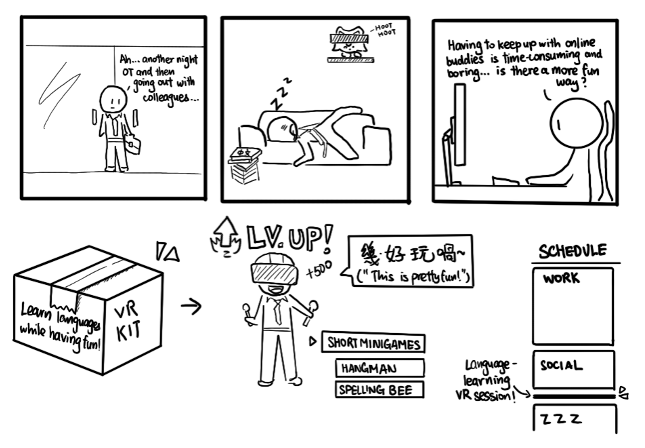 Ah... another night
OT and then
going out with
colleagues...
-HOOT
HOOT
ZZZ
Having to keep up with online
buddies is time-consuming and
boring... is there a more fun
way?
Learn languages
while having fun!
VR
KIT
LV. UP!
+500
幾好玩喎~
("This is pretty fun!")
SHORT MINIGAMES
HANGMAN
SPELLING BEE
SCHEDULE
WORK
SOCIAL
Language-
learning
VR session!
ZZZ